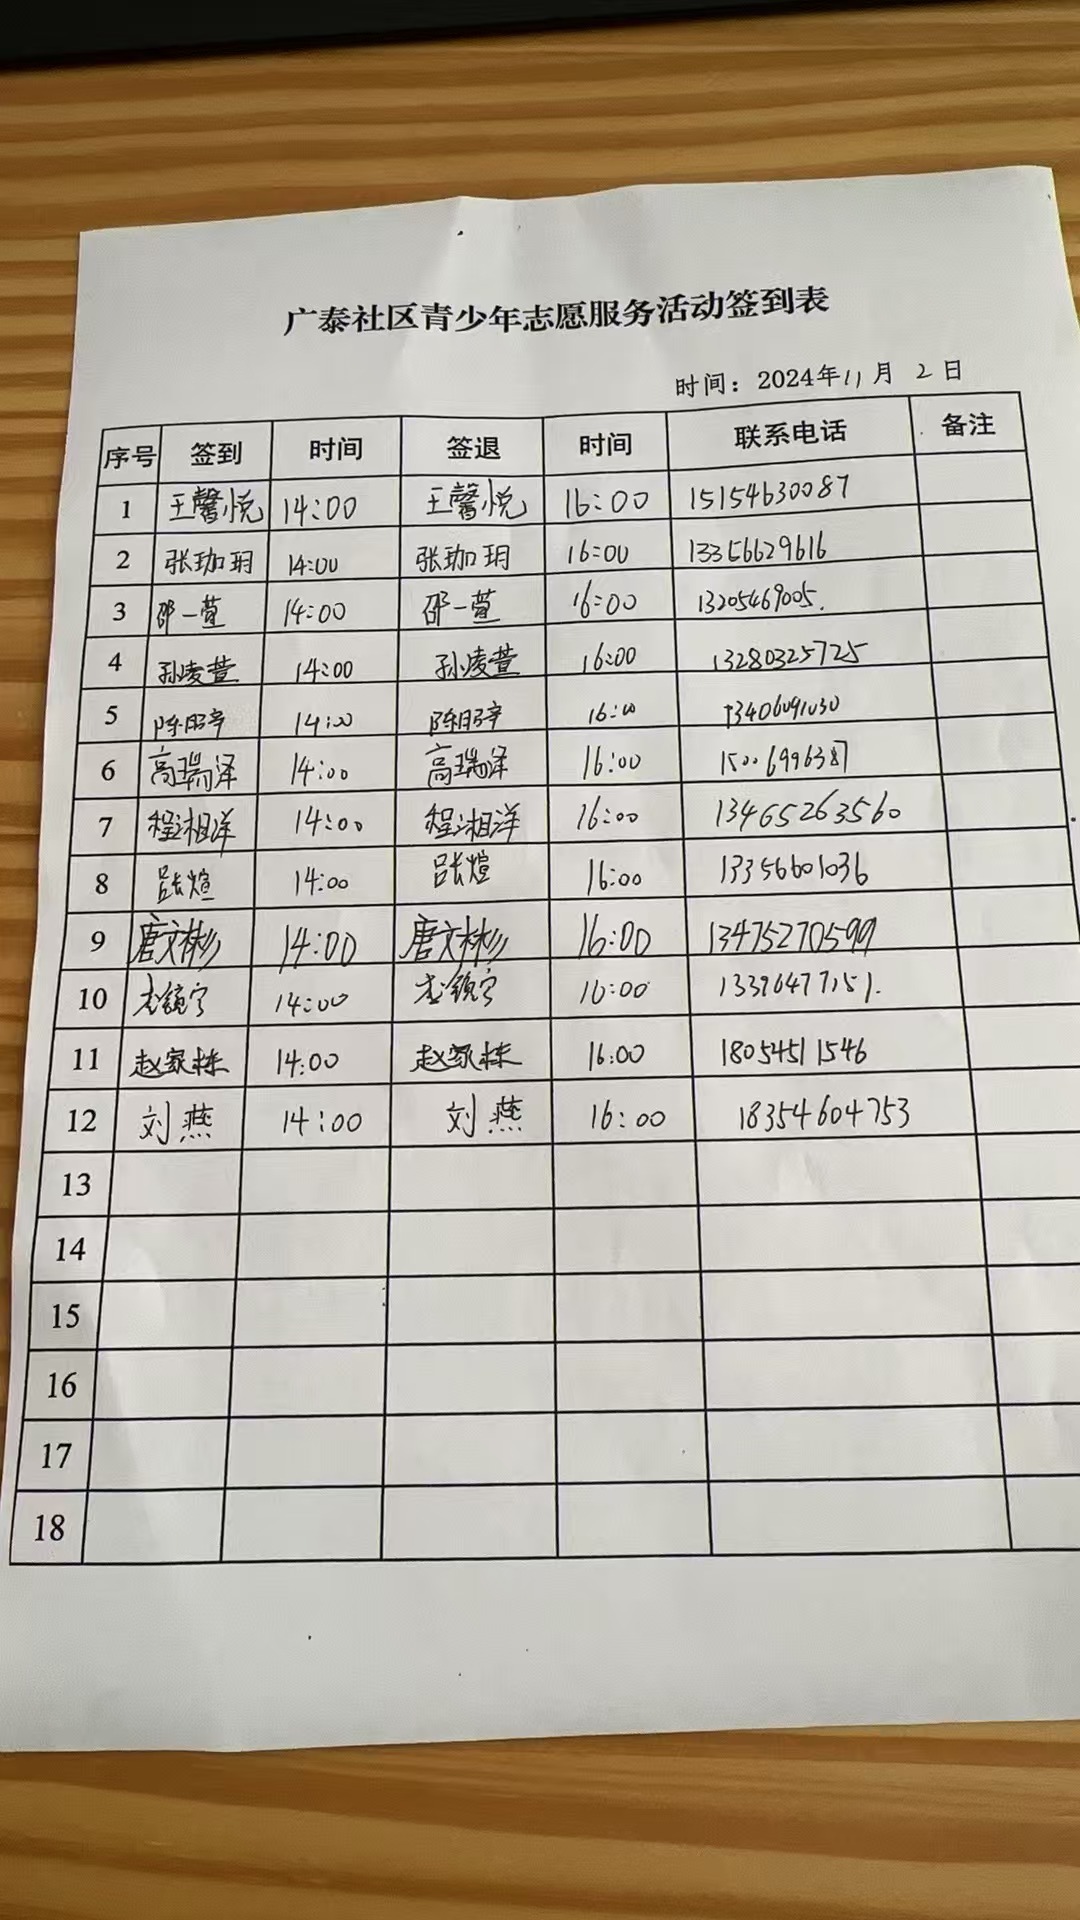 广泰社区青少年志愿服务活动签到表
时间：2024年11月 2 日
序号 签到 时间 签退 时间 联系电话 备注
1 王馨悦 14:00 王馨悦 16:00 15154630087
2 张珈玥 14:00 张珈玥 16:00 13356629616
3 邵一萱 14:00 邵一萱 16:00 13205469005.
4 孙凌萱 14:00 孙凌萱 16:00 13280325725
5 14:00 16:00 13406091030
6 高瑞泽 14:00 高瑞泽 16:00 15006996387
7 程湘洋 14:00 程湘洋 16:00 13465263560
8 14:00 16:00 13356601036
9 唐文彬 14:00 唐文彬 16:00 13475270599
10 14:00 16:00
11 赵家栋 14:00 赵家栋 16:00 18054511546
12 刘燕 14:00 刘燕 16:00 18354604753
13
14
15
16
17
18